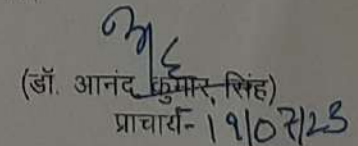 (डॉ. आनंद कुमार सिंह)
प्राचार्य- 19/07/23